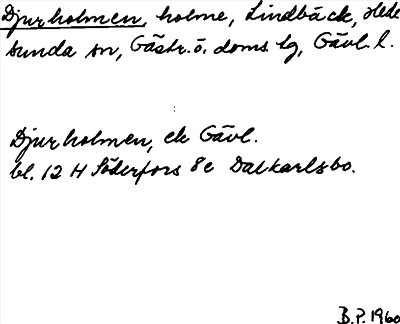 Djurholmen, holme, Lindbäck, Hede
sunda sn, Gästr. ö. doms lg, Gävl. l.
Djurholmen, ek Gävl.
bl. 12 H Söderfors 8e Dalkarlsbo.
B.P. 1960